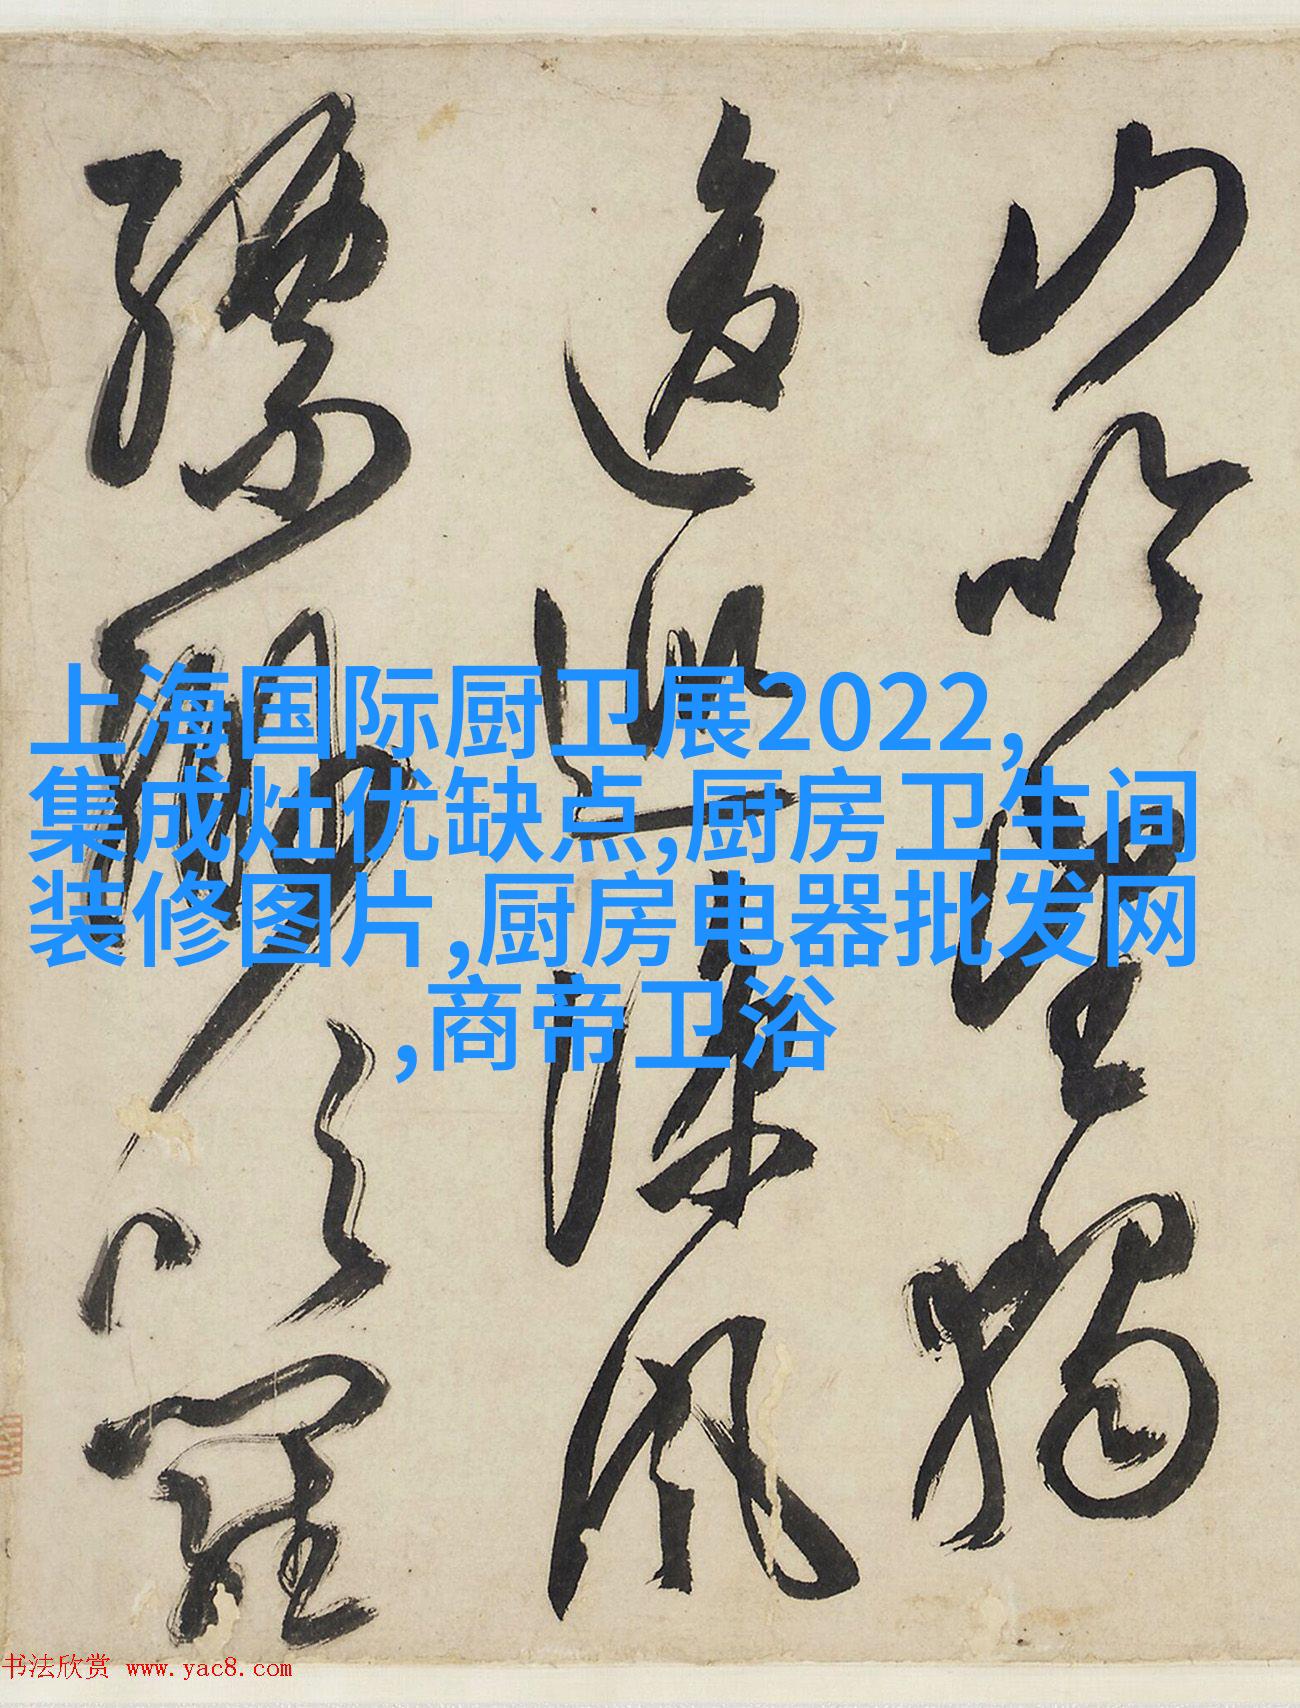 上海国际厨卫展2022,
集成灶优缺点,厨房卫生间
装修图片,厨房电器批发网
,商帝卫浴
山吟望獨
逡巡涼風
縹吹羅
书法欣赏 www.yac8.com